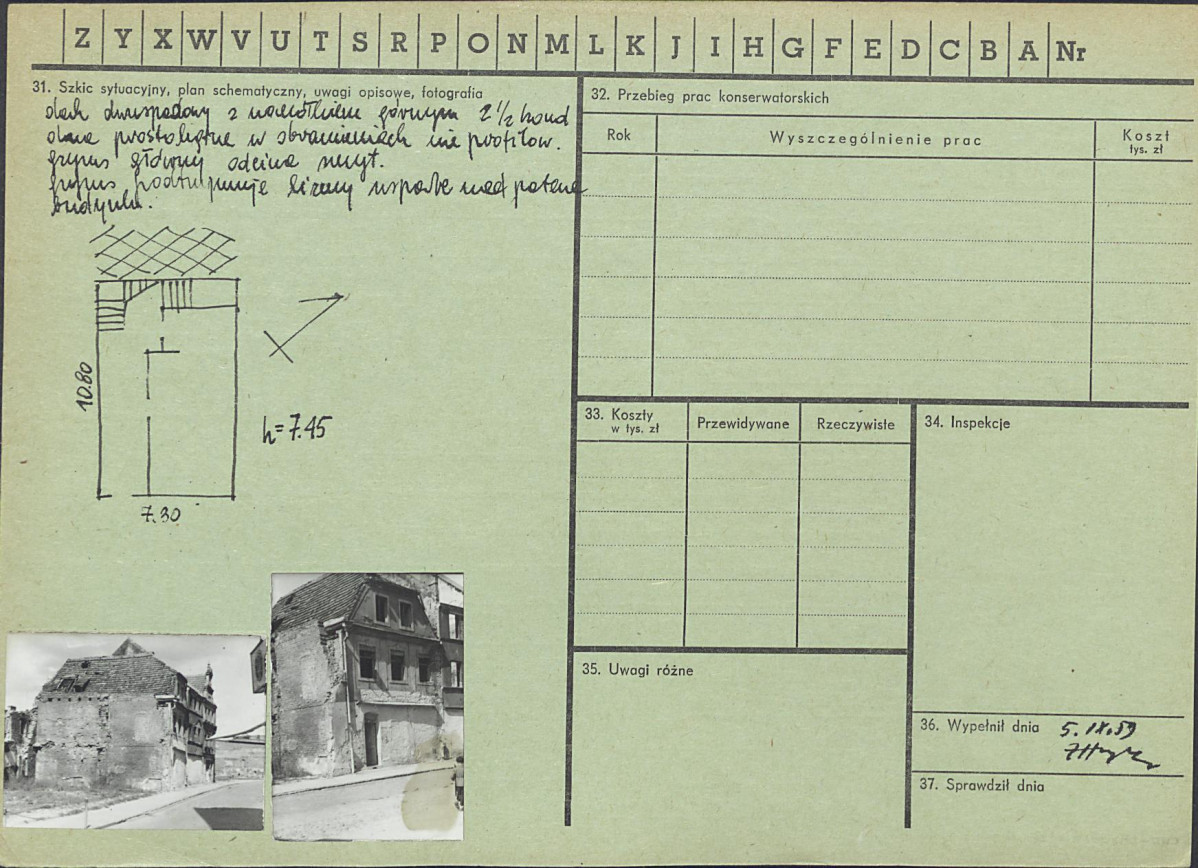 Z Y X W V U T S R P O N M L K J I H G F E D C B A Nr
31. Szkic sytuacyjny, plan schematyczny, uwagi opisowe, fotografia
dach dwuspadowy z naczółkiem górnym 2 1/2 kond
okna prostokątne w obramieniach nie profilow.
gzyms główny odcina szczyt.
gzyms podtrzymuje lizeny wsparte nad
budynku.
10.80
7.30
h=7.45
32. Przebieg prac konserwatorskich
Rok
Wyszczególnienie prac
Koszt
tys. zł
33. Koszty
w tys. zł
Przewidywane
Rzeczywiste
34. Inspekcje
35. Uwagi różne
36. Wypełnił dnia 5.IX.59
37. Sprawdził dnia